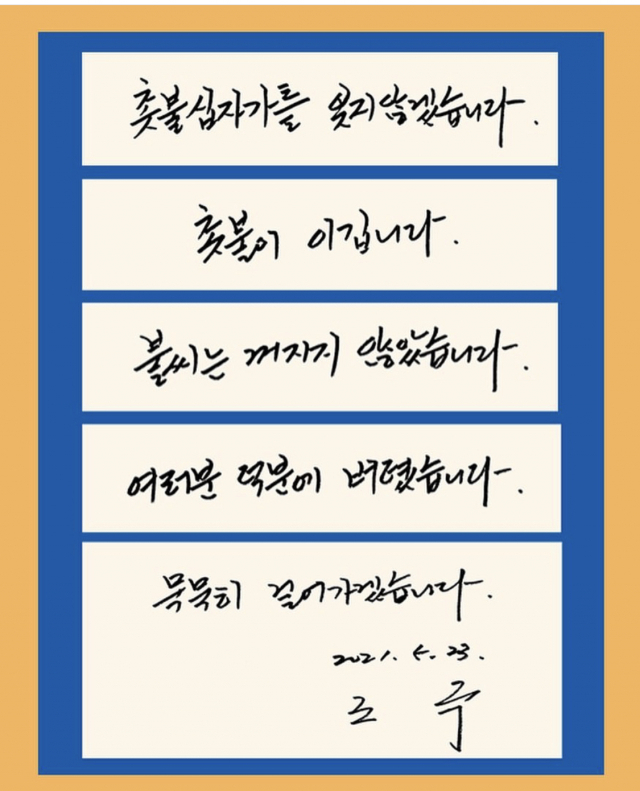 촛불십자가를 잊지않겠습니다.
촛불이 이깁니다.
불씨는 꺼지지 않았습니다.
여러분 덕분에 버텼습니다.
묵묵히 걸어가겠습니다.
2021. 5. 23.
조 국